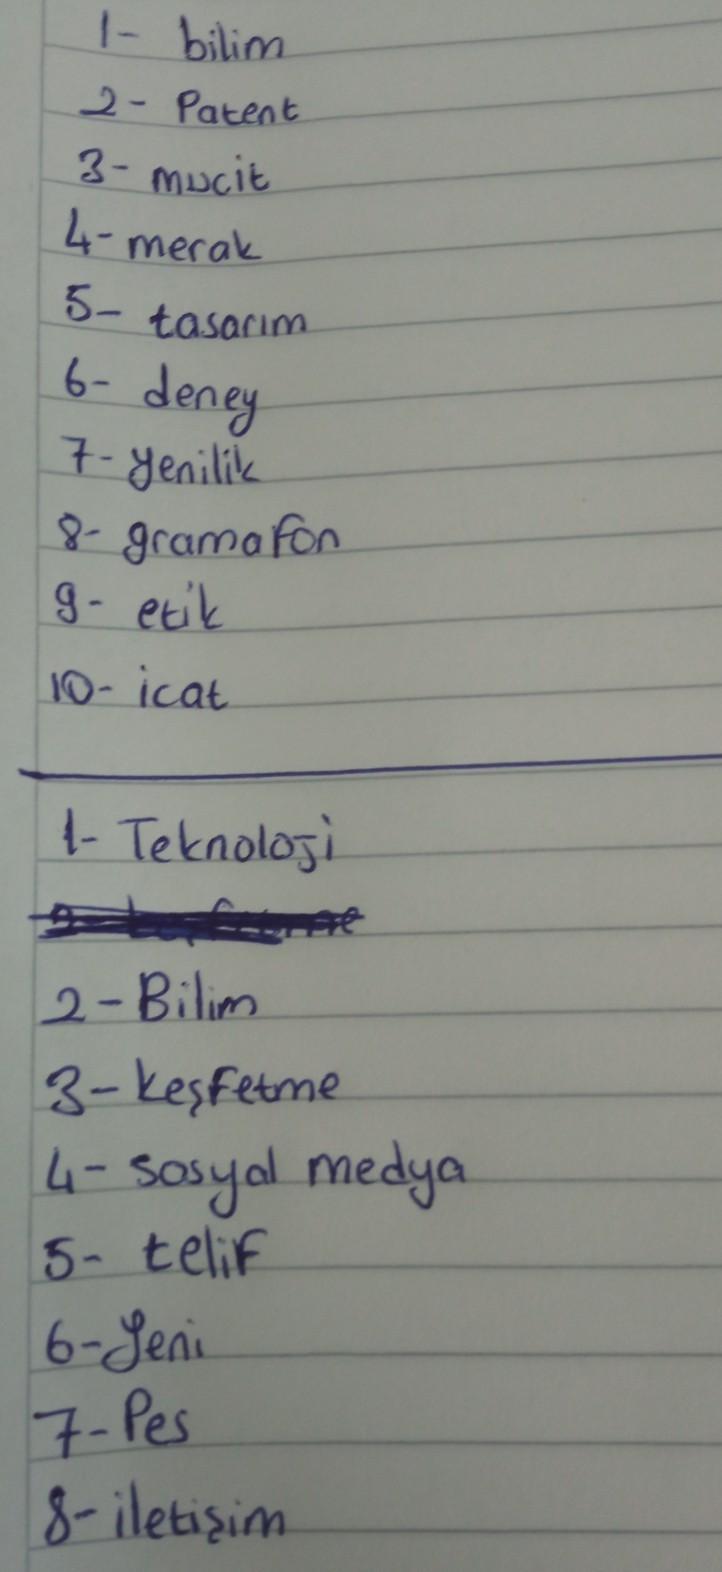 1- bilim
2- Patent
3- mucit
4- merak
5- tasarım
6- deney
7- yenilik
8- gramafon
9- etik
10- icat
1- Teknoloji
2- Bilim
3- keşfetme
4- sosyal medya
5- telif
6- Yeni
7- Pes
8- iletişim